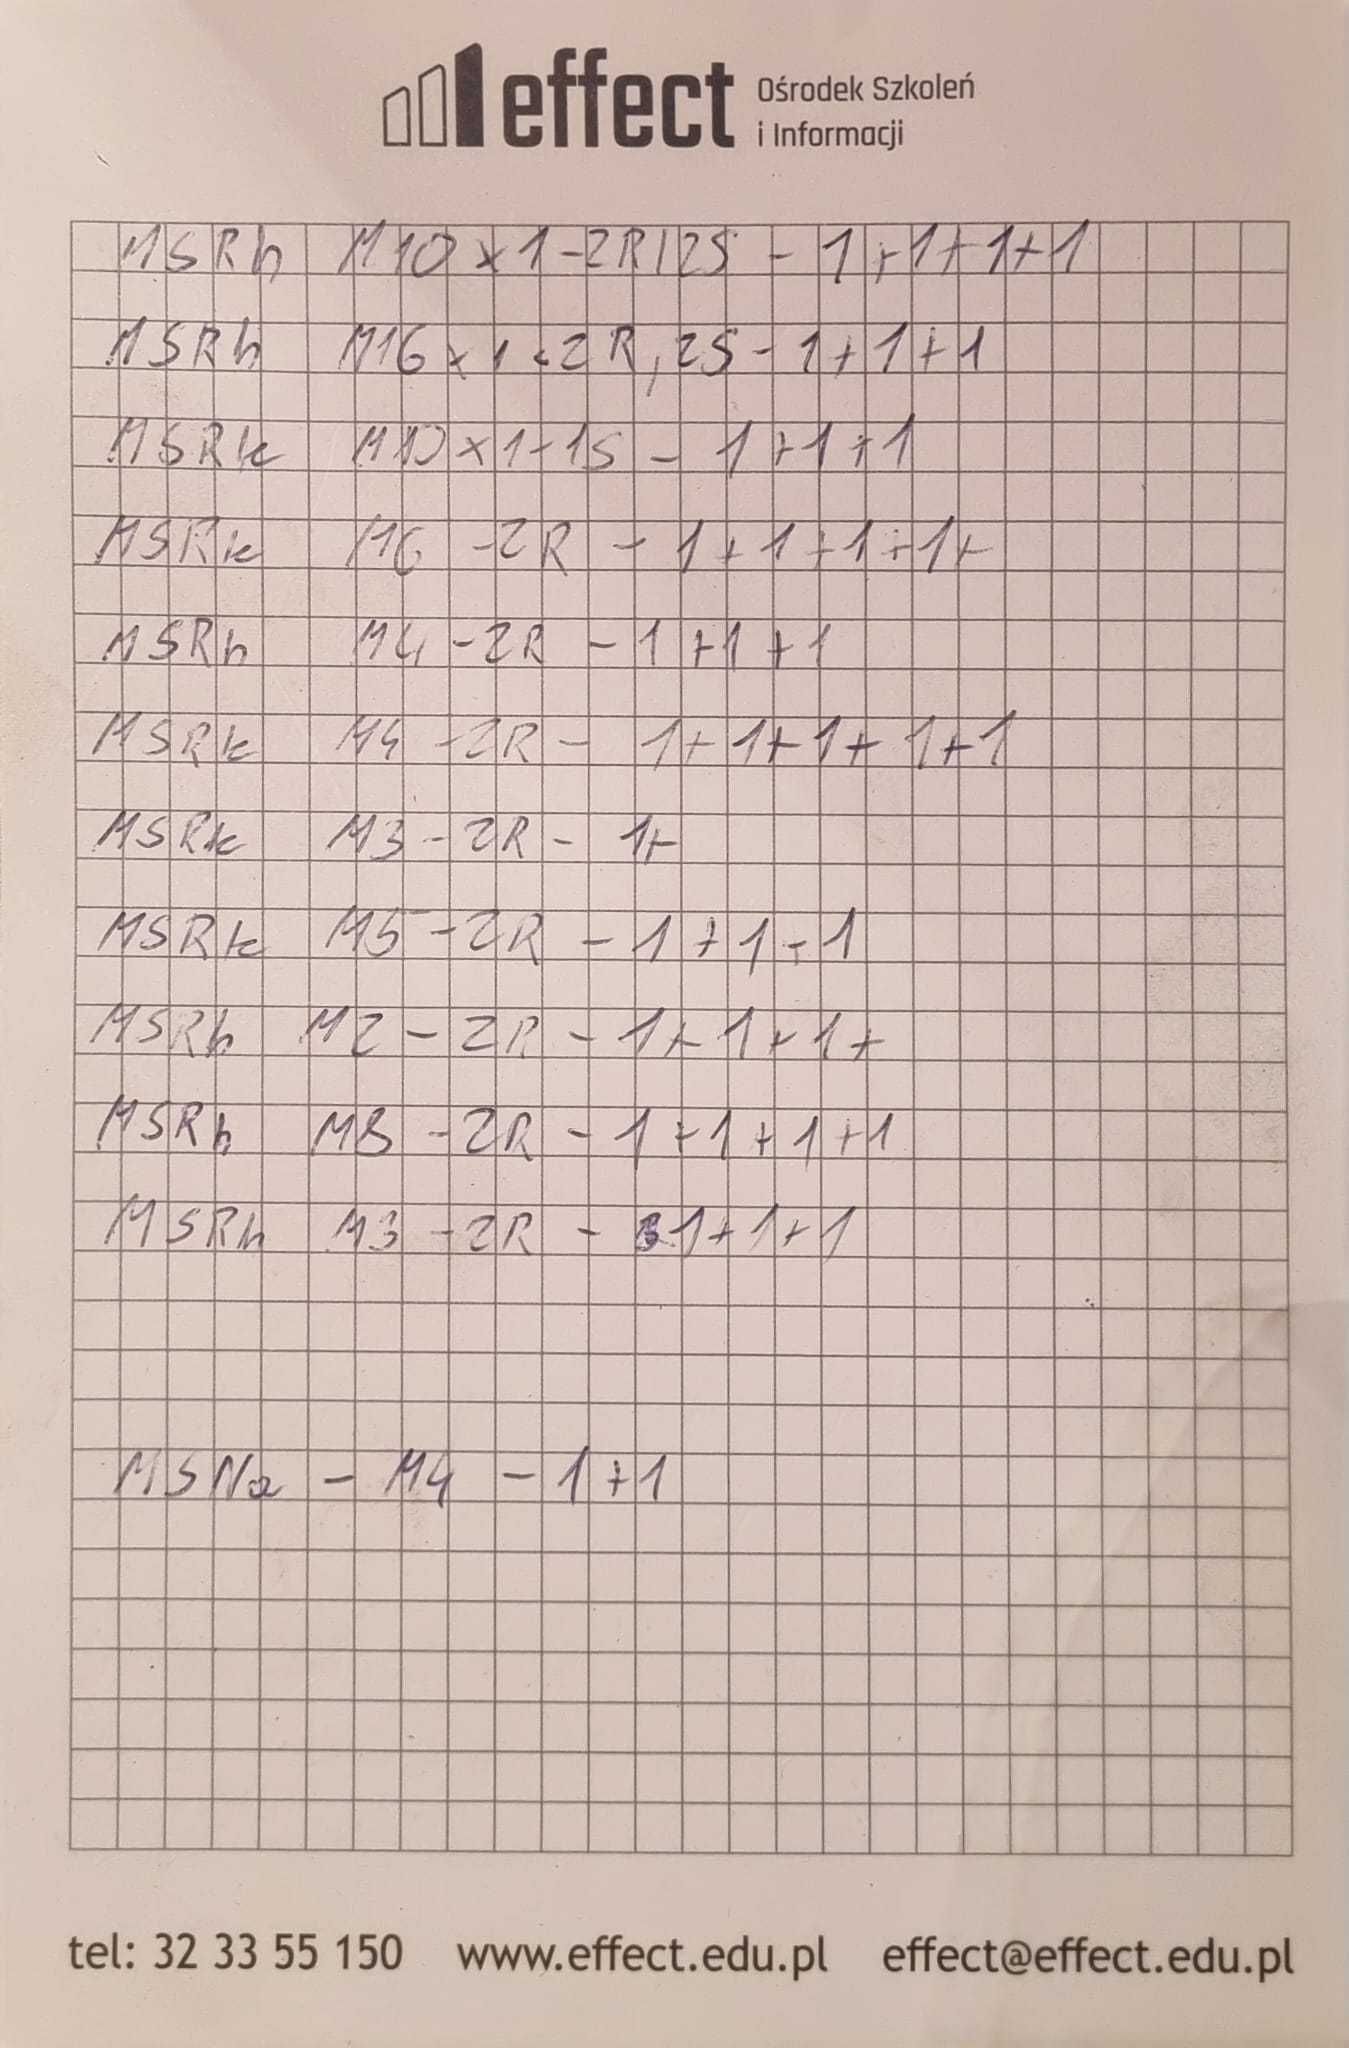 effect Ośrodek Szkoleń
i Informacji
MSRh M10x1-2R/2S - 1+1+1+1
MSRh M16x1-2R,2S - 1+1+1
MSRk M10x1-1S - 1+1+1
MSRk M6 -2R - 1+1+1+1+
MSRh M4 -2R - 1+1+1
MSRk M4 -2R - 1+1+1+1+1
MSRk M3 - 2R - 1+
MSRk M5 -2R - 1+1+1
MSRh M2 - 2R - 1+1+1+
MSRh M8 -2R - 1+1+1+1
MSRh M3 -2R - 1+1+1
MSNa - M4 - 1+1
tel: 32 33 55 150 www.effect.edu.pl effect@effect.edu.pl